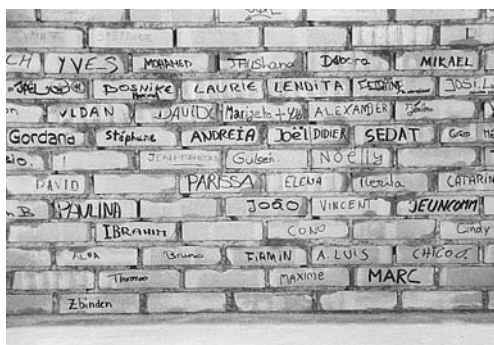 YVES MOHAMED Débora MIKAEL
BOSNIKE LAURIE LENDITA
VLDAN DAVID Marijeta + Yb ALEXANDER
Gordana Stéphane ANDREIA Joël DIDIER SEDAT
Gülsen Noëlly
DAVID PARISSA ELENA Nerita CATARIN
PAULINA JOÃO VINCENT JEUNCOMM
IBRAHIM CONO Cindy
ALBA Bruno FIRMIN A. LUIS CHICO
Thomas MAXIME MARC
Zbinden